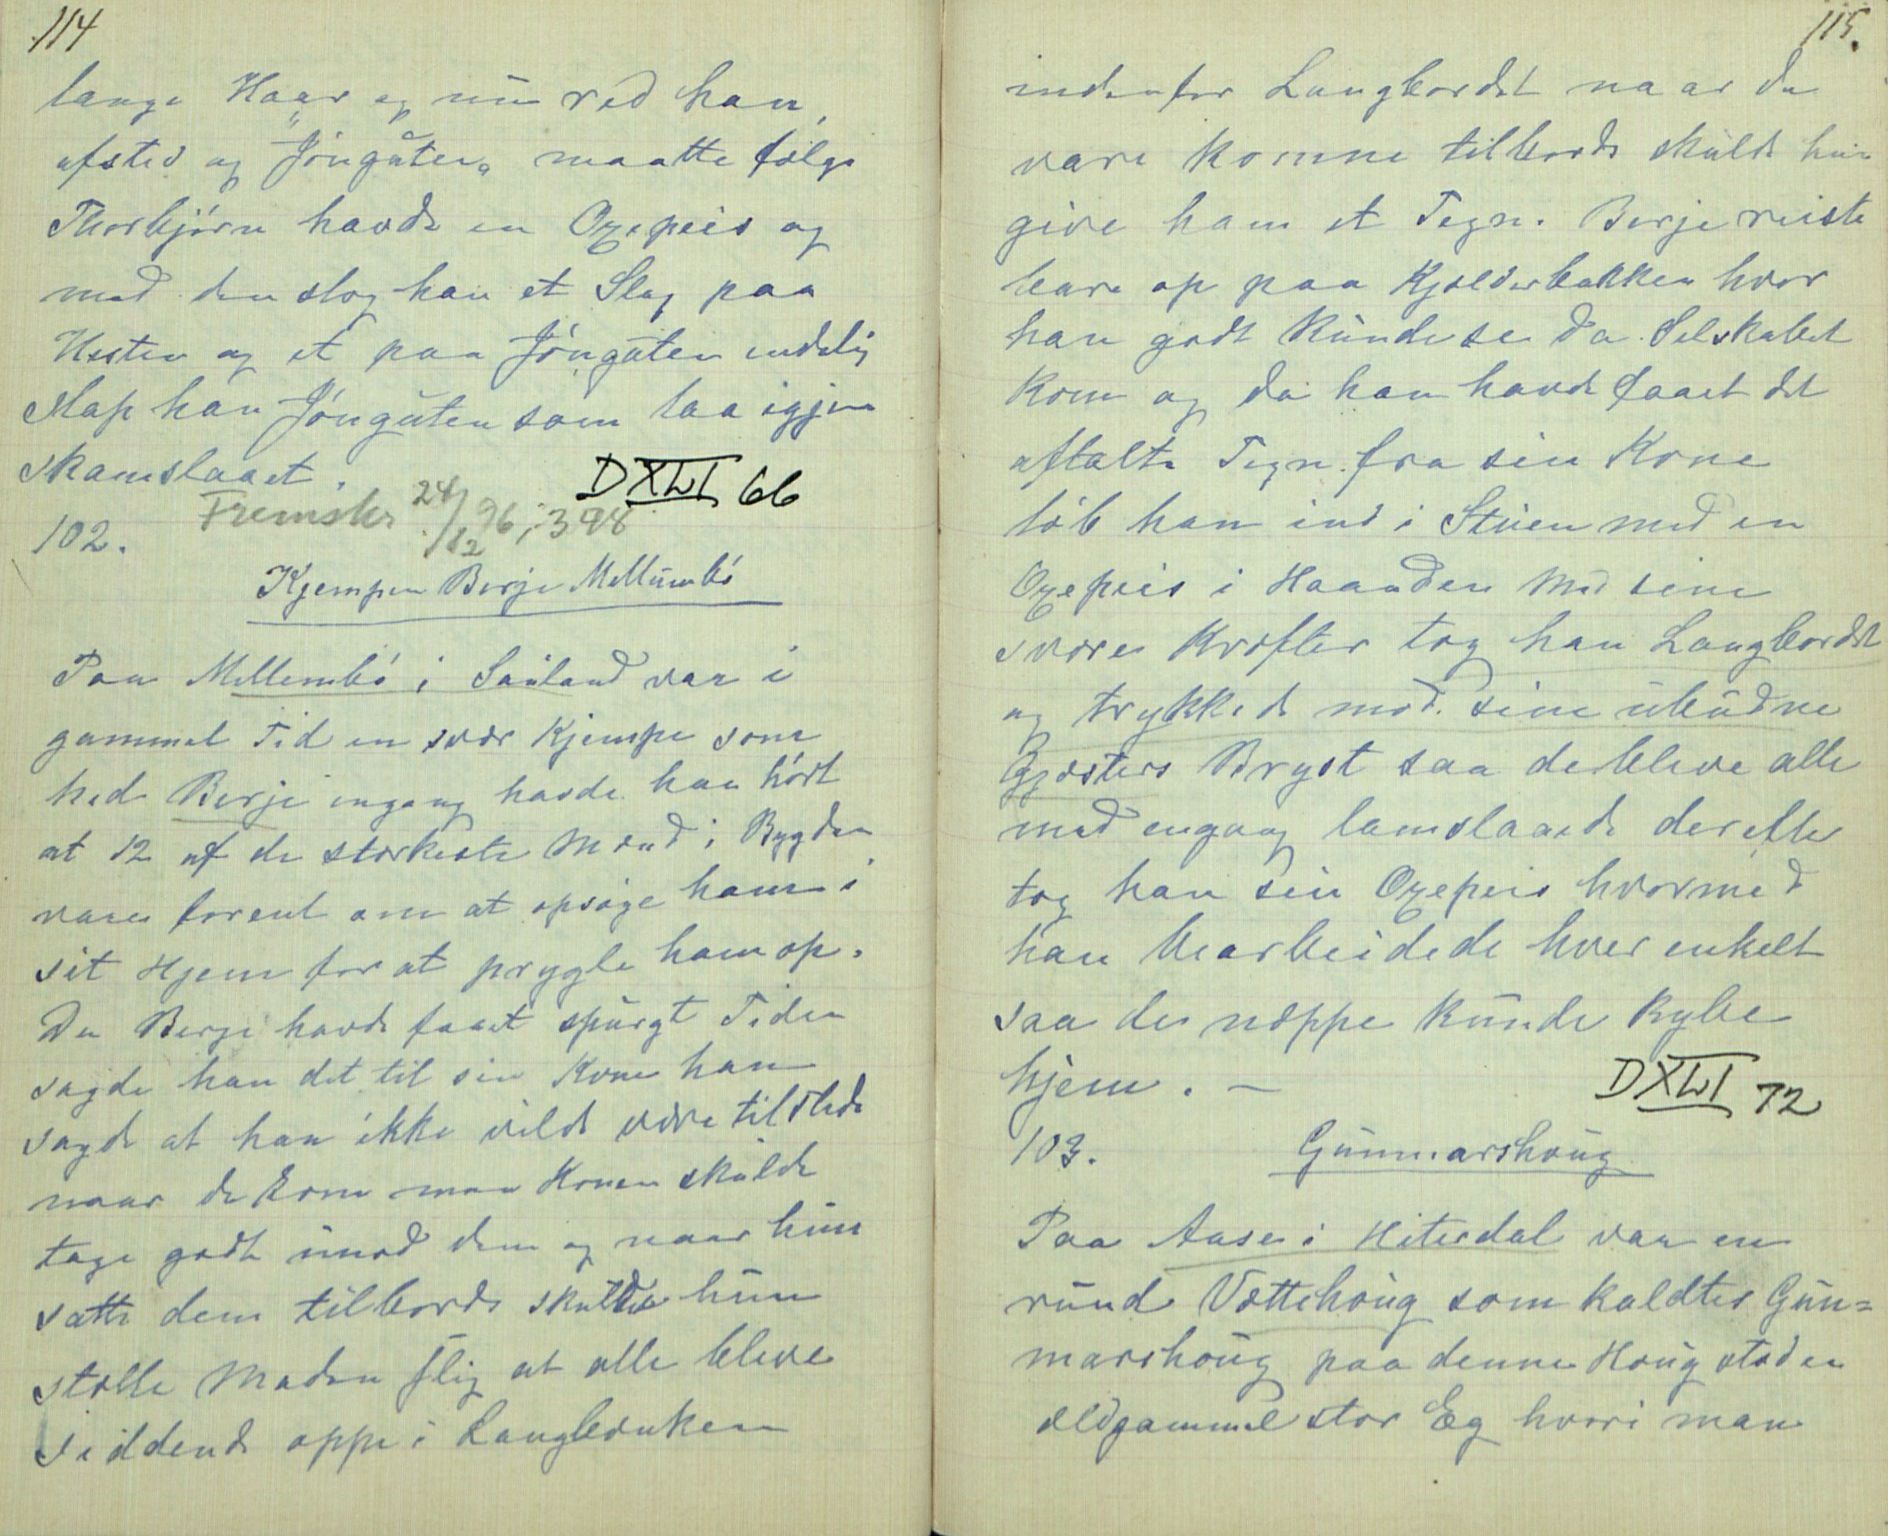 114
lange Haar og nu red han,
afsted og "Jóngåten" maatte følge
Thorbjórn havde en Oxepeis og
med den slog han et Slag paa
Hesten og et paa Jóngåten endelig
slap han Jóngåten som laa igjen
skamslaaet.
DXLI 66
Fremskr 24/12 96, 398
102.
Kjempen Berje Mellumbó
Paa Mellembó i Sauland var i
gammel Tid en svær Kjempe som
hed Berje engang havde han hórt
at 12 af de stærkeste Mænd i Bygden
vare forent om at opsóge ham i
sit Hjem for at prygle ham op.
Da Berje havde faaet spurgt Tiden
sagde han det til sin Kone han
sagde at han ikke vilde være tilstede
naar de kom men Konen skulde
tage godt imod dem og naar hun
satte dem tilbords skulde hun
stelle Maden slig at alle bleve
siddende oppe i Langbænken
115.
indenfor Langbordet naar de
vare komne tilbords skulde hun
give ham et Tegn. Berje reiste
bare op paa Kjelderbakken hvor
han godt kunde se da Selskabet
kom og da han havde faaet det
aftalte Tegn fra sin Kone
lób han ind i Stuen med en
Oxepeis i Haanden Med sine
svære Kræfter tog han Langbordet
og trykkede mod sine ubudne
Gjæsters Bryst saa de bleve alle
med engang lamslaaede derefter
tog han sin Oxepeis hvormed
han bearbeidede hver enkelt
saa de neppe kunde krybe
hjem. —
DXLI 72
103.
Gunnarshoug
Paa Aase i Hiterdal var en
rund Vættehoug som kaldtes Gun=
marshoug paa denne Houg stod en
ældgammel stor Eg hvori man